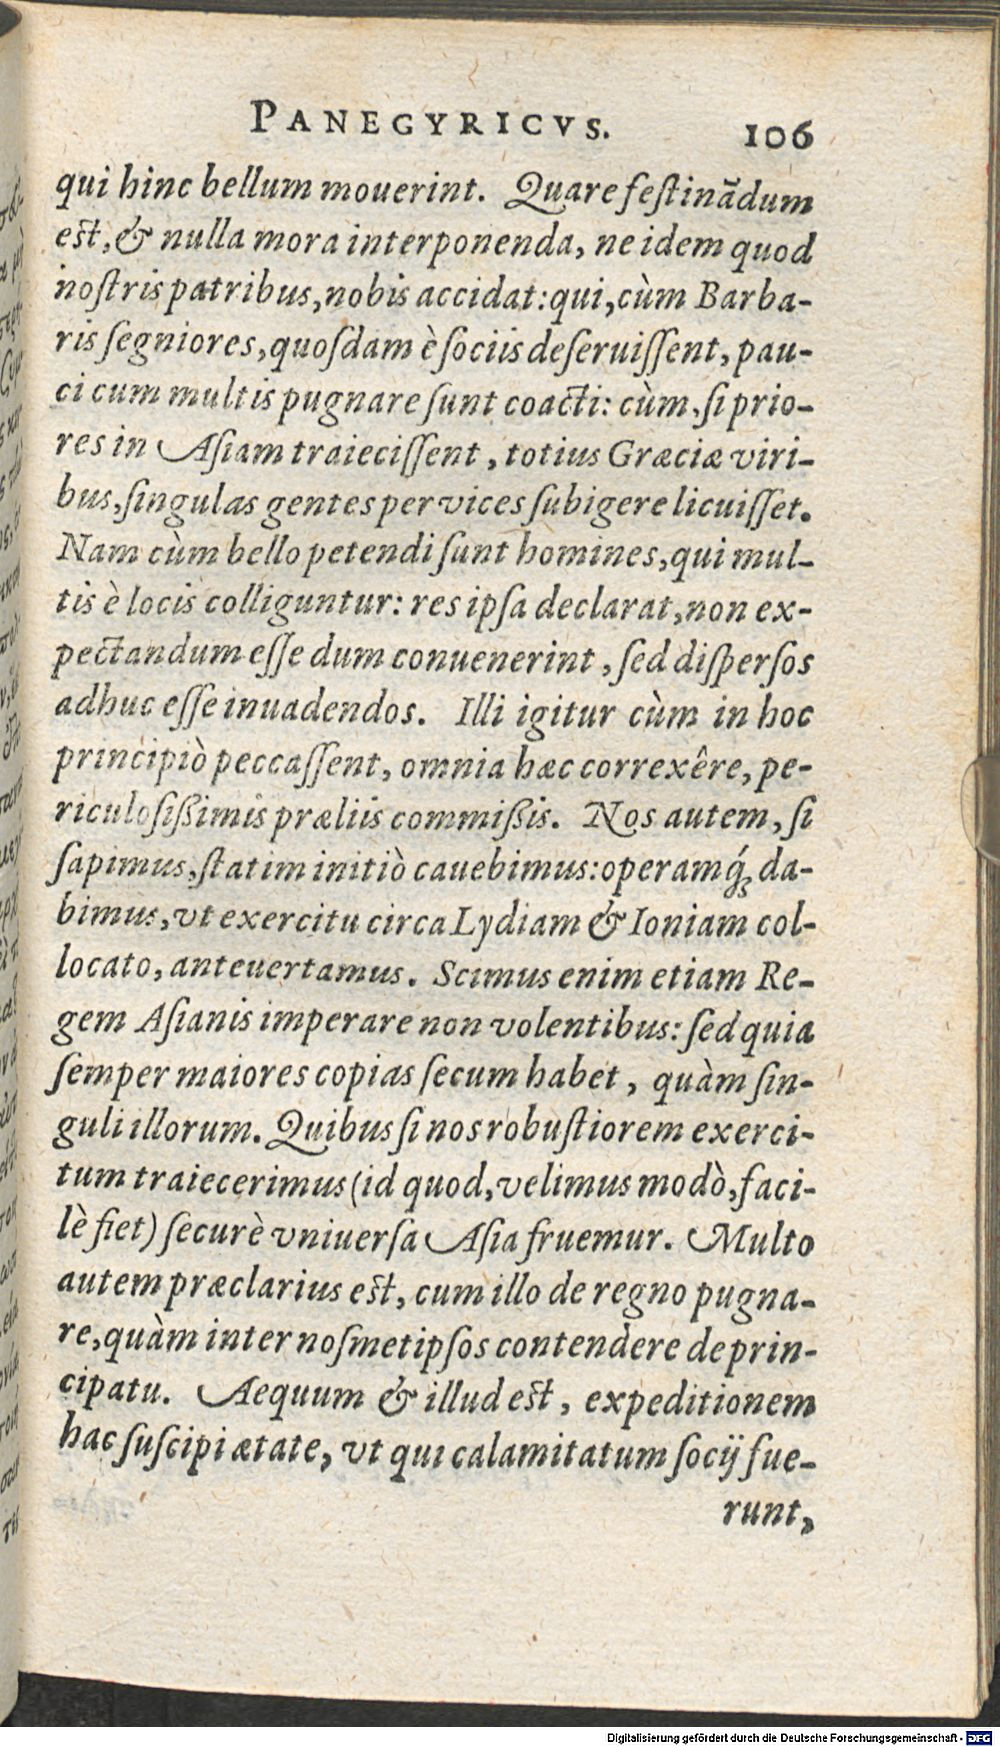 PANEGYRICVS. 106
qui hinc bellum mouerint. Quare feſtinãdum
eſt, & nulla mora interponenda, ne idem quod
noſtris patribus, nobis accidat: qui, cùm Barba-
ris ſegniores, quoſdam è ſociis deſeruiſſent, pau-
ci cum multis pugnare ſunt coacti: cùm, ſi prio-
res in Aſiam traieciſſent, totius Græciæ viri-
bus, ſingulas gentes per vices ſubigere licuiſſet.
Nam cùm bello petendi ſunt homines, qui mul-
tis è locis colliguntur: res ipſa declarat, non ex-
pectandum eſſe dum conuenerint, ſed diſperſos
adhuc eſſe inuadendos. Illi igitur cùm in hoc
principiò peccaſſent, omnia hæc correxêre, pe-
riculoſißimis præliis commißis. Nos autem, ſi
ſapimus, ſtatim initiò cauebimus: operamq́; da-
bimus, vt exercitu circa Lydiam & Ioniam col-
locato, anteuertamus. Scimus enim etiam Re-
gem Aſianis imperare non volentibus: ſed quia
ſemper maiores copias ſecum habet, quàm ſin-
guli illorum. Quibus ſi nos robuſtiorem exerci-
tum traiecerimus (id quod, velimus modò, faci-
lè fiet) ſecurè vniuerſa Aſia fruemur. Multo
autem præclarius eſt, cum illo de regno pugna-
re, quàm inter noſmetipſos contendere de prin-
cipatu. Aequum & illud eſt, expeditionem
hac ſuſcipi ætate, vt qui calamitatum ſocij fue-
runt,
Digitalisierung gefördert durch die Deutsche Forschungsgemeinschaft - DFG